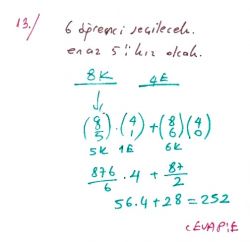 13./ 6 öğrenci seçilecek.
en az 5'i kız olcak.
8K 4E
(8 5) . (4 1) + (8 6) (4 0)
5K 1E 6K
876/6 . 4 + 87/2
56.4+28=252
CEVAP:E